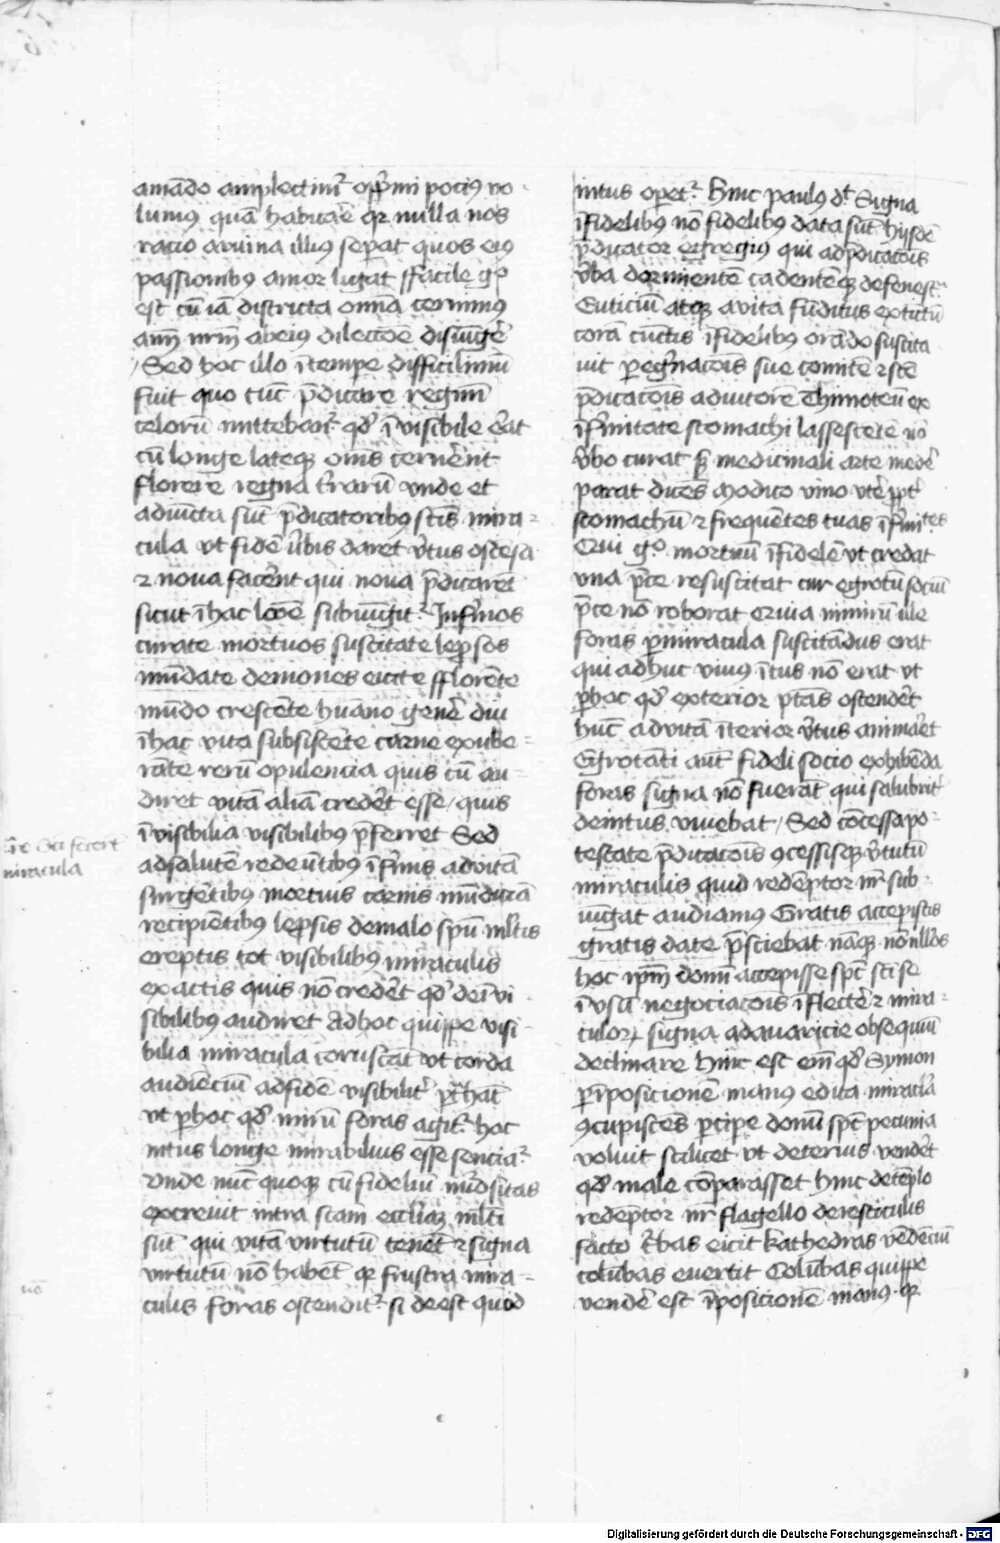 amādo amplectimr̄ opp̄mi poci9 no
lum9 quā habitar̄e qr nulla nos
racio a ruina illi9 sep̲at quos ei9
passionib9 amor ligat ffacile g°
est cū iā districta omnia cernim9
aīm nr̄m ab ei9 dilectōe disiūger̄e
/ Sed hoc illo ī tempe difficilimū
fuit quo tūc p̄dicare regnū
celorū mittebant̄ qd̓ īvisibile erat
cū longe lateq; om̄s cernēnt
florer̄e regna trarū vnde et
adiūcta sūt p̄dicatorib9 sc̄is mira=
cula vt fidē v̓bis daret v̓tus ostēsa
⁊ noua facēnt qui noua p̄dicarēt
sicut ī hac lcōe subiūgit̄ Infirmos
curate mortuos suscitate lep̲sos
mūdate demones eicite fflorēte
mūdo crescēte hūano gen̄e diu
ī hac vita subsistēte carne exube=
rāte rerū opulencia quis cū au=
diret vitā aliā cred̓et esse / quis
īvisibilia visibilib9 p̄ferret Sed
ad salutē redeūtib9 īfirmis ad vitā
surgētib9 mortuis carnis mūdiciā
recipiētib9 lep̲sis de malo sp̄u ml̄tis
ereptis tot visibilib9 miraculis
exactis quis nō cred̓et qd̓ de īvi=
sibilib9 audiret Ad hoc quippe visi=
bilia miracula coruscāt vt corda
audiēciū ad fidē visibiliū p̲t̓hāt
vt p̲ hoc qd̓ mirū foras agit̄ hoc
intus longe mirabilius esse sencia̓t
Vnde nūc quoq; cū fideliū mld̓situs
excreuit intra scām eccl̄iaz ml̄ti
sūt qui vitā virtutū tenēt ⁊ signa
virtutū nō habēt qr frustra mira=
culis foras ostendit̄ si deest quod
intus opet̄ Hinc paul9 d̄t Signa
īfidelib9 nō fidelib9 data sūt hijsdē
p̄dicator egregius qui ad p̄dicacōis
v̓ba dormientē cadentēq; de fenest̄
Euticiū atq; a vita fūditus extītū
corā cūctis īfidelib9 orādo suscita
uit p̲egr̓nacōis sue comitē ⁊ scē
p̄dicacōis adiutorē Thimoteū ex
īfirmitate stomachi lassescēte nō
v̓bo curat s̓ medicinali arte meder̄
parat dicēs Modico vino vtēr̄ pp̄t
stomachū ⁊ frequētes tuas īfirmi̅tes
Qui g° mortuū īfidelē vt credat
vna p̄ce resuscitat cur egrotū sociū
p̄ce nō roborat Quia nimirū ille
foras p̲ miracula suscitādus erat
qui adhuc viu9 ītus nō erat vt
p̲ hoc qd̓ exterior p̲tās ostendēt
hūc ad vitā īterior v̓tus animar̄et
Egrotāti aūt fideli socio exhibēda
foras signa nō fuerāt qui salubrit̄
deintus viuebat / Sed cōcessa po=
testate p̄dicacōis 9cessisq; v̓tutū
miraculis quid redēptor nr̄ sub=
iūgat audiam9 Gratis accepistis
gratis date p̄sciebat nāq; nōnllōs
hoc ip̄m donū accepisse sp̄c sci se
ī vsū negociacōis īflectēr̄ ⁊ mira=
culor̨ signa ad auaricie obsequiū
declinare Hinc est em̄ qd̓ Symon
p̲ īposicionē man9 edita miracl̄a
9cupiscēs p̲cipe donū sp̄c pecunia
voluit scilicet vt deterius vendēt
qd̓ male cōparasset Hinc de tēplo
redēptor nr̄ flagello de resticulis
facto t̓bas eicit kathedras vēdēciū
colūbas euertit Colūbas quippe
vender̄ est īposicionē man9 qr
miracula